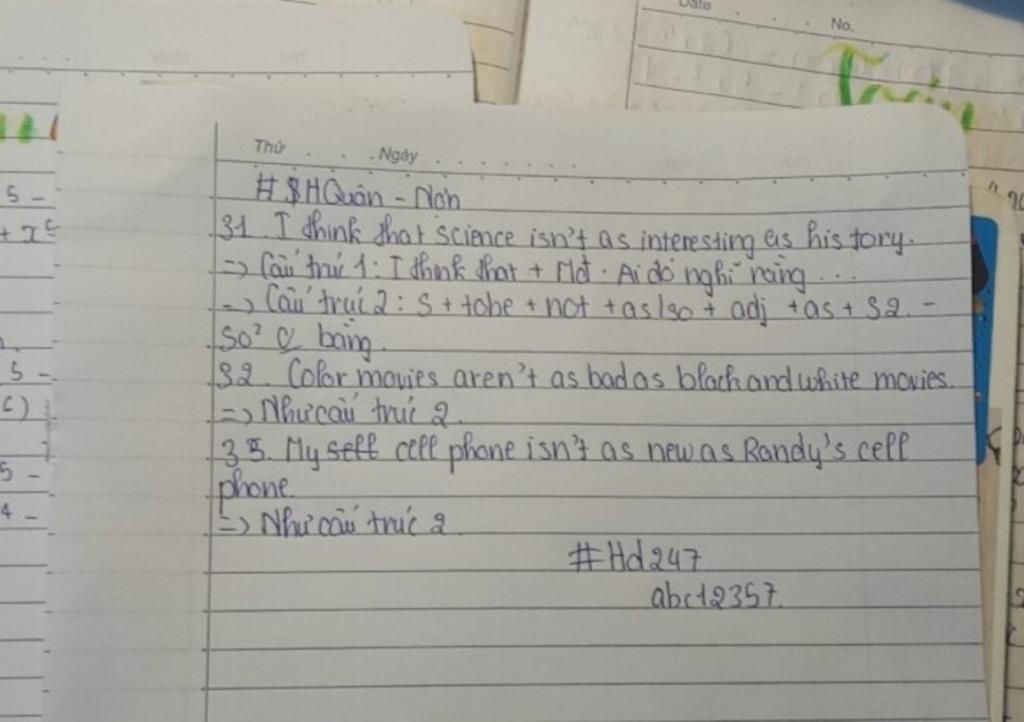 Date No.
Toán
Thứ Ngày
#$HQuân - Non
31. I think that science isn't as interesting as history.
=> Cấu trúc 1: I think that + Mđ. Ai đó nghĩ rằng ...
=> Cấu trúc 2: S + tobe + not + as/so + adj + as + S2. -
So² bằng.
32. Color movies aren't as bad as black and white movies.
=> Như cấu trúc 2.
35. My cell phone isn't as new as Randy's cell
phone.
=> Như cấu trúc 2
#Hd247
abc12357.